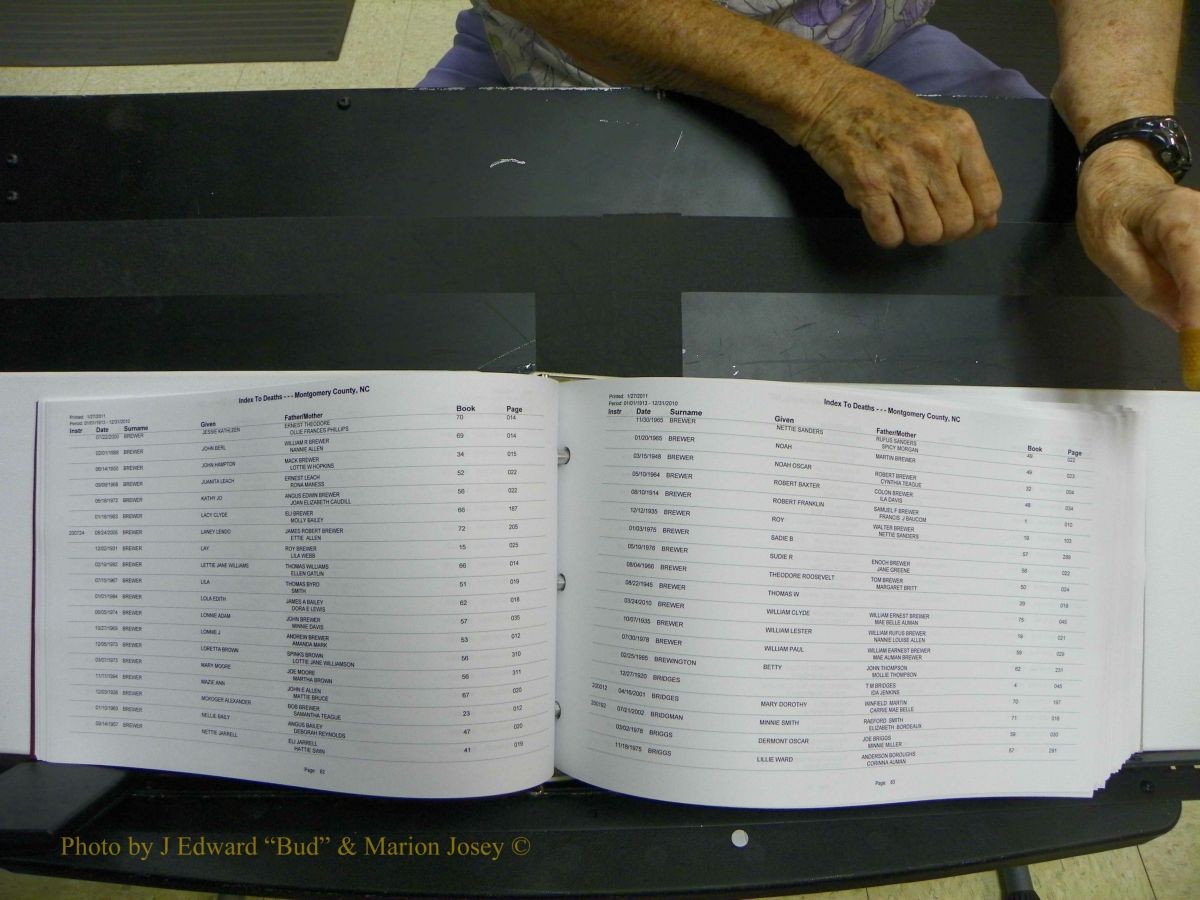 Index To Deaths - - - Montgomery County, NC
Printed: 1/27/2011
Period: 01/01/1913 - 12/31/2010
Instr Date Surname Given Father/Mother Book Page
07/22/2000 BREWER JESSIE KATHLEEN ERNEST THEODORE 70 014
OLLIE FRANCES PHILLIPS
BREWER JOHN BERL WILLIAM R BREWER 69 014
NANNIE ALLEN
BREWER JOHN HAMPTON MACK BREWER 34 015
LOTTIE W HOPKINS
BREWER JUANITA LEACH ERNEST LEACH 52 022
RONA MANESS
BREWER KATHY JO ANGUS EDWIN BREWER 56 022
JOAN ELIZABETH CAUDILL
BREWER LACY CLYDE ELI BREWER 66 187
MOLLY BAILEY
200724 08/24/2005 BREWER LANEY LENDO JAMES ROBERT BREWER 72 205
ETTIE ALLEN
12/02/1931 BREWER LAY ROY BREWER 15 025
LILA WEBB
BREWER LETTIE JANE WILLIAMS THOMAS WILLIAMS 66 014
ELLEN GATLIN
07/15/1967 BREWER LILA THOMAS BYRD 51 019
SMITH
01/01/1984 BREWER LOLA EDITH JAMES A BAILEY 62 018
DORA E LEWIS
BREWER LONNIE ADAM JOHN BREWER 57 035
MINNIE DAVIS
10/27/1969 BREWER LONNIE J ANDREW BREWER 53 012
AMANDA MARK
12/06/1973 BREWER LORETTA BROWN SPINKS BROWN 56 310
LOTTIE JANE WILLIAMSON
03/07/1973 BREWER MARY MOORE JOE MOORE 56 311
MARTHA BROWN
11/11/1994 BREWER MAZIE ANN JOHN E ALLEN 67 020
MATTIE BRUCE
12/03/1938 BREWER MCKOGER ALEXANDER BOB BREWER 23 012
SAMANTHA TEAGUE
01/10/1963 BREWER NELLIE BAILY ANGUS BAILEY 47 020
DEBORAH REYNOLDS
09/14/1957 BREWER NETTIE JARRELL ELI JARRELL 41 019
HATTIE SWIN
Page 62
Index To Deaths - - - Montgomery County, NC
Printed: 1/27/2011
Period: 01/01/1913 - 12/31/2010
Instr Date Surname Given Father/Mother Book Page
11/30/1965 BREWER NETTIE SANDERS RUFUS SANDERS 49 022
SPICY MORGAN
01/20/1965 BREWER NOAH MARTIN BREWER 49 023
03/15/1948 BREWER NOAH OSCAR ROBERT BREWER 32 004
CYNTHIA TEAGUE
05/10/1964 BREWER ROBERT BAXTER COLON BREWER 48 034
ILA DAVIS
08/10/1914 BREWER ROBERT FRANKLIN SAMUEL F BREWER 1 010
FRANCIS J BAUCOM
12/12/1935 BREWER ROY WALTER BREWER 19 103
NETTIE SANDERS
01/03/1975 BREWER SADIE B 57 289
05/19/1976 BREWER SUDIE R ENOCH BREWER 58 022
JANE GREENE
08/04/1966 BREWER THEODORE ROOSEVELT TOM BREWER 50 024
MARGARET BRITT
08/22/1945 BREWER THOMAS W 29 018
03/24/2010 BREWER WILLIAM CLYDE WILLIAM ERNEST BREWER 75 045
MAE BELLE AUMAN
10/07/1935 BREWER WILLIAM LESTER WILLIAM RUFUS BREWER 19 021
NANNIE LOUISE ALLEN
07/30/1978 BREWER WILLIAM PAUL WILLIAM EARNEST BREWER 59 029
MAE AUMAN BREWER
02/25/1985 BREWINGTON BETTY JOHN THOMPSON 62 231
MOLLIE THOMPSON
12/27/1920 BRIDGES T M BRIDGES 4 045
IDA JENKINS
200012 04/16/2001 BRIDGES MARY DOROTHY WINFIELD MARTIN 70 197
CARRIE MAE BELLE
200192 07/21/2002 BRIDGMAN MINNIE SMITH RAEFORD SMITH 71 016
ELIZABETH BORDEAUX
03/02/1978 BRIGGS DERMONT OSCAR JOE BRIGGS 59 030
MINNIE MILLER
11/18/1975 BRIGGS LILLIE WARD ANDERSON BOROUGHS 57 291
CORINNA AUMAN
Page 63
Photo by J Edward “Bud” & Marion Josey ©